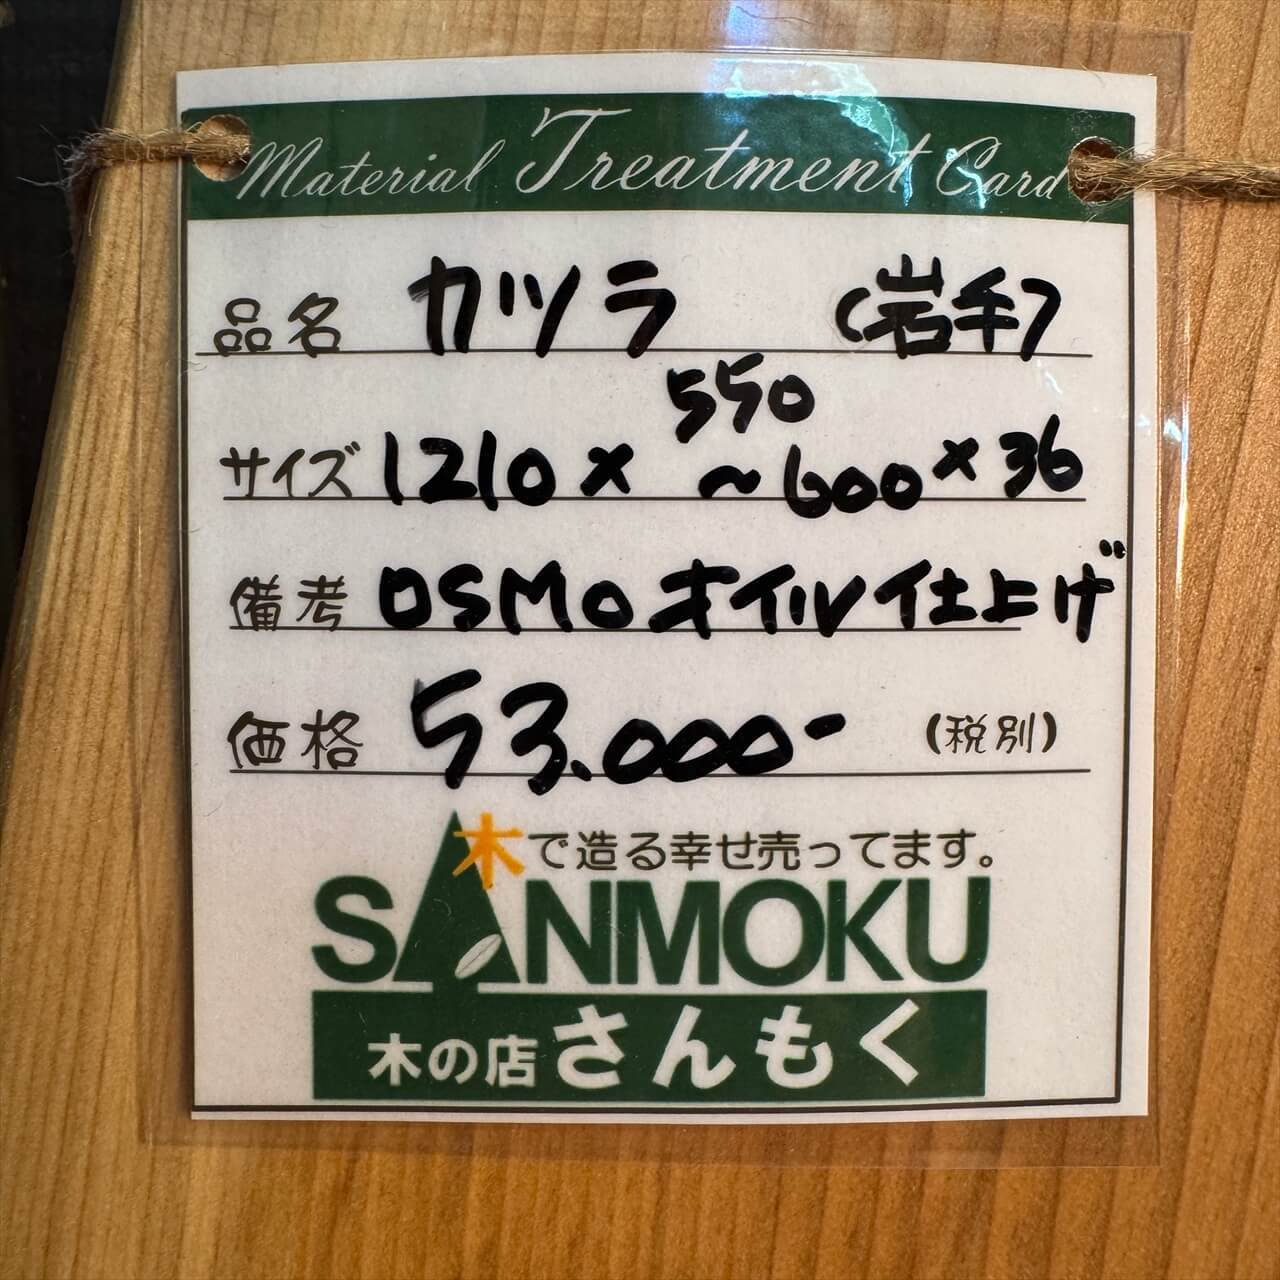 Material Treatment Card
品名 カツラ (岩手)
サイズ 1210 × 550 ~600 × 36
備考 OSMOオイル仕上げ
価格 53.000- (税別)
木で造る幸せ売ってます。
SANMOKU
木の店さんもく